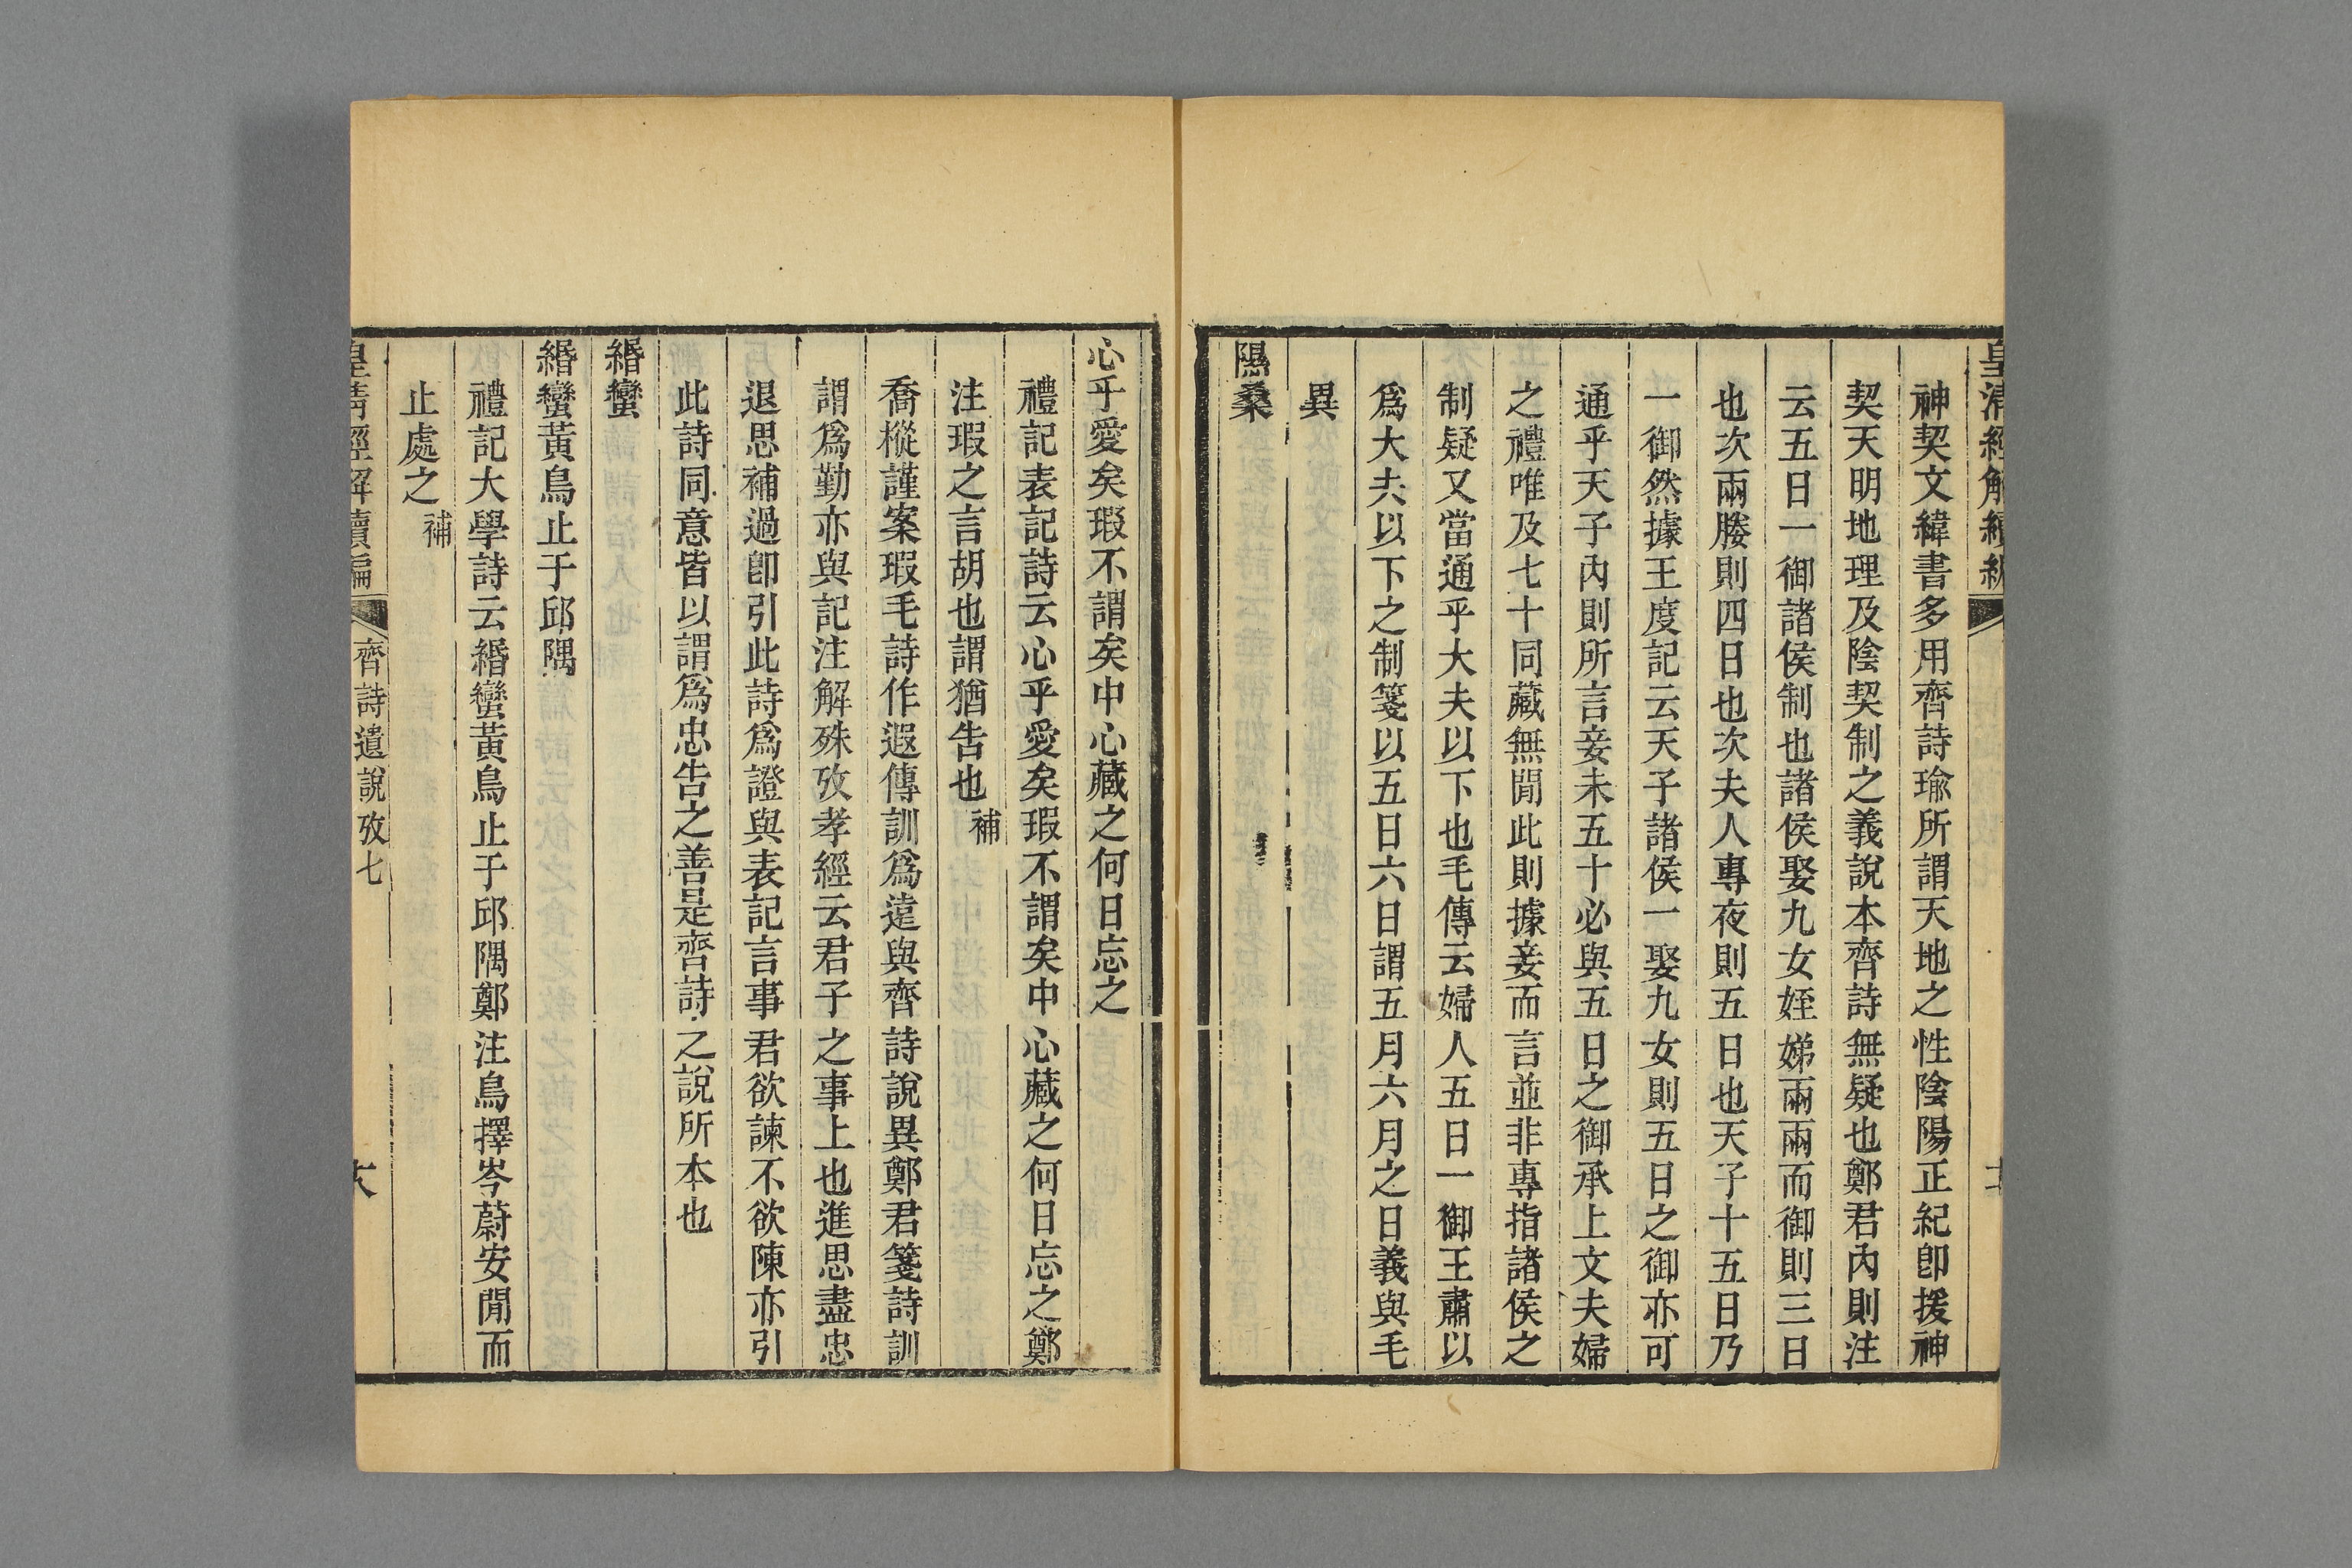 皇清經解續編
神契文緯書多用齊詩瑜所謂天地之性陰陽正紀卽援神
契天明地理及陰契制之義說本齊詩無疑也鄭君內則注
云五日一御諸侯制也諸侯娶九女姪娣兩兩而御則三日
也次兩媵則四日也次夫人專夜則五日也天子十五日乃
一御然據王度記云天子諸侯一娶九女則五日之御亦可
通乎天子內則所言妾未五十必與五日之御承上文夫婦
之禮唯及七十同藏無閒此則據妾而言並非專指諸侯之
制疑又當通乎大夫以下也毛傳云婦人五日一御王肅以
爲大夫以下之制箋以五日六日謂五月六月之日義與毛
異
隰桑
心乎愛矣瑕不謂矣中心藏之何日忘之
禮記表記詩云心乎愛矣瑕不謂矣中心藏之何日忘之鄭
注瑕之言胡也謂猶告也補
喬樅謹案瑕毛詩作遐傳訓爲遠與齊詩說異鄭君箋詩訓
謂爲勤亦與記注解殊攷孝經云君子之事上也進思盡忠
退思補過卽引此詩爲證與表記言事君欲諫不欲陳亦引
此詩同意皆以謂爲忠告之善是齊詩之說所本也
緡蠻
緡蠻黃鳥止于邱隅
禮記大學詩云緡蠻黃鳥止于邱隅鄭注鳥擇岑蔚安閒而
止處之補
皇清經解續編 齊詩遺說攷七